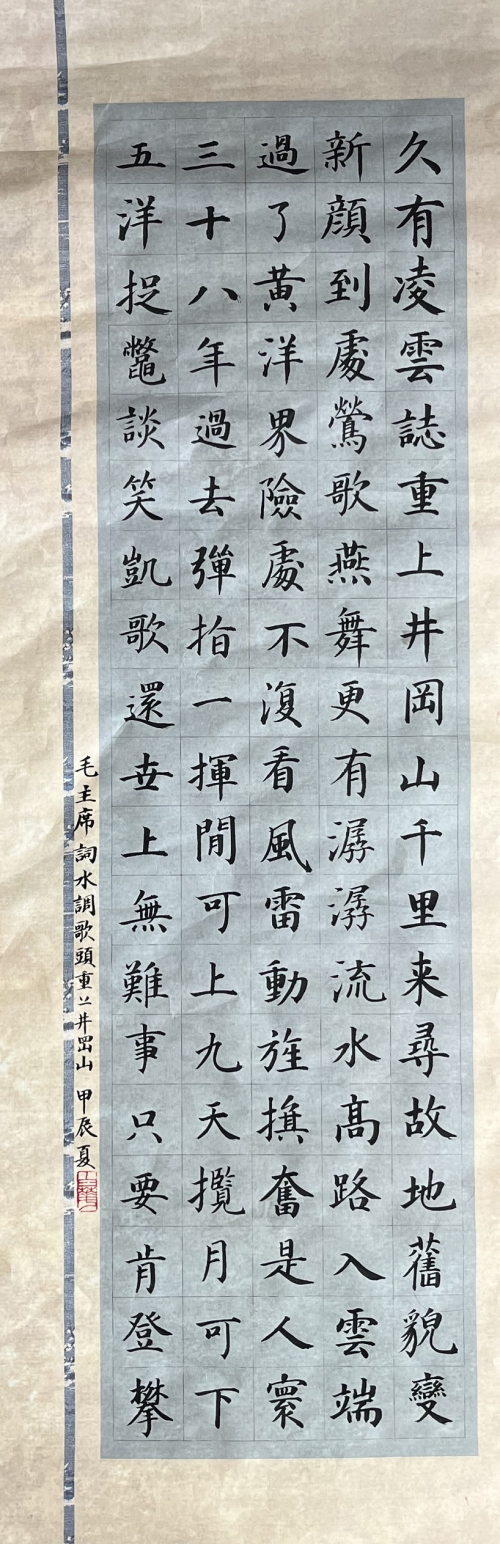 久有凌雲誌重上井岡山千里来尋故地舊貌變
新顔到處鶯歌燕舞更有潺潺流水高路入雲端
過了黄洋界險處不復看風雷動旌旗奮是人寰
三十八年過去彈指一揮間可上九天攬月可下
五洋捉鱉談笑凱歌還世上無難事只要肯登攀
毛主席詞水調歌頭重上井岡山 甲辰夏